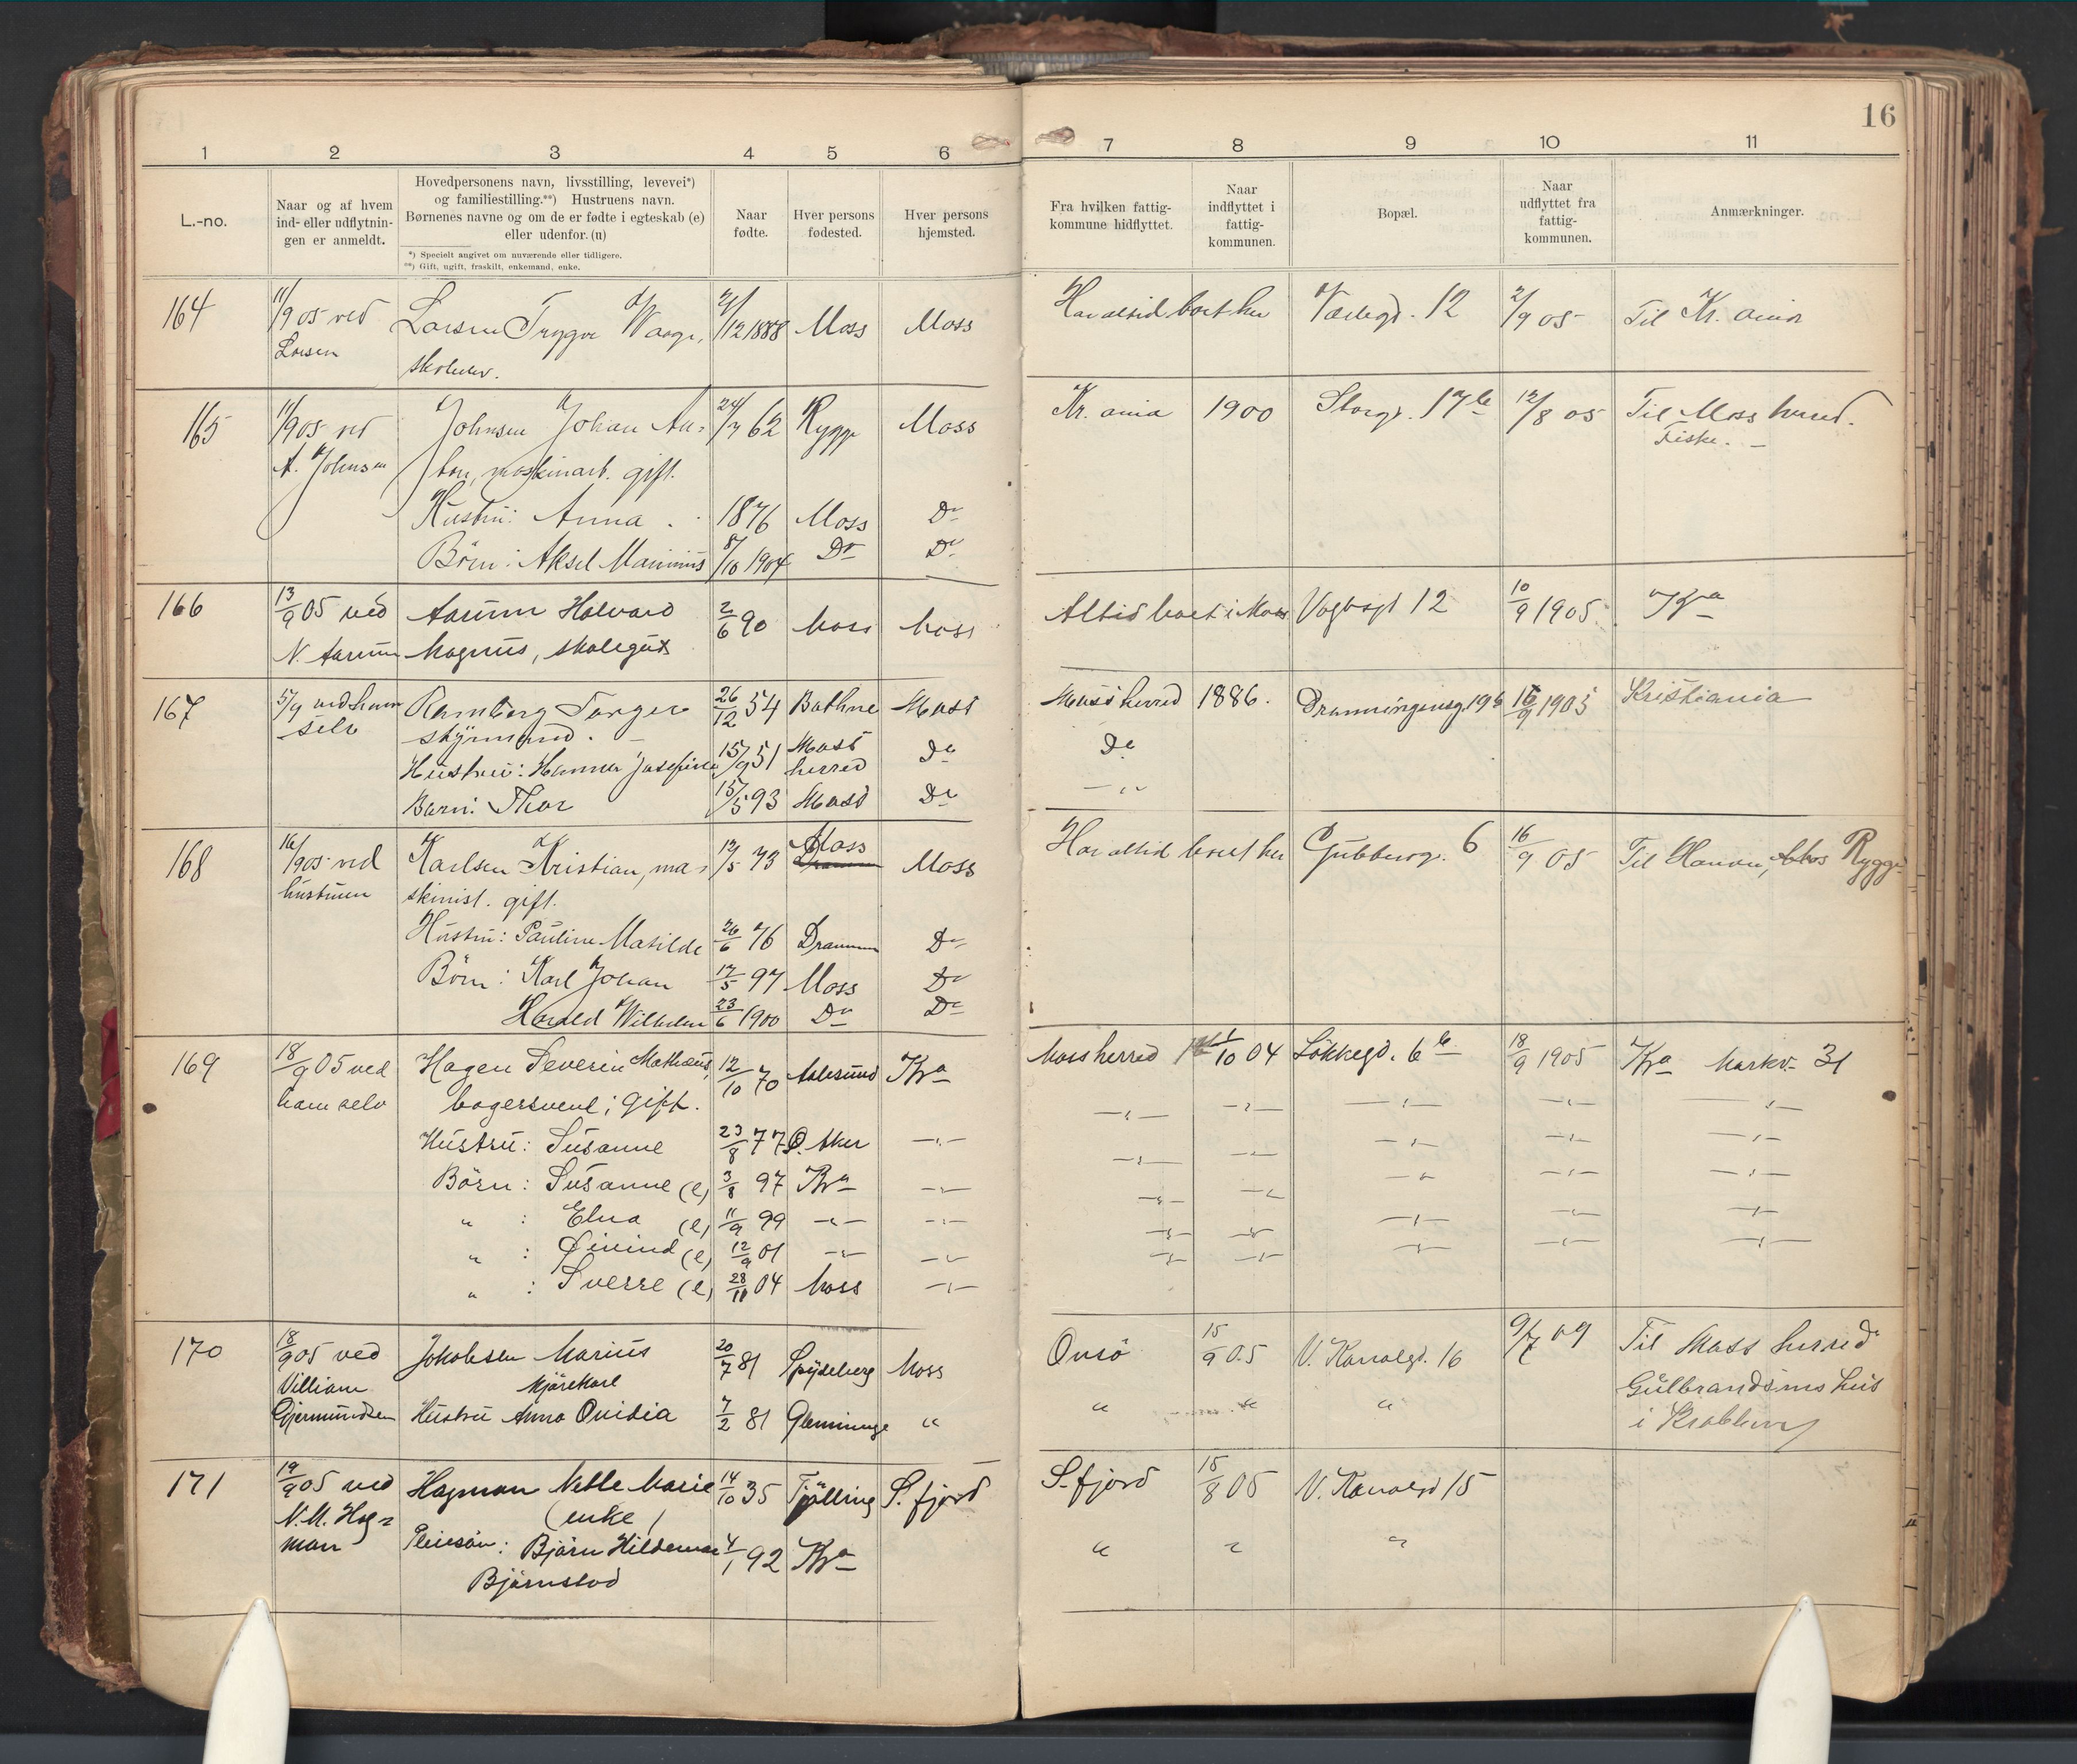 16
1 2 3 4 5 6 7 8 9 10 11
L.-no.
Naar og af hvem
ind- eller udflytnin-
gen er anmeldt.
Hovedpersonens navn, livsstilling, levevei*)
og familiestilling.**) Hustruens navn.
Børnenes navne og om de er fødte i egteskab (e)
eller udenfor. (u)
*) Specielt angivet om nuværende eller tidligere.
**) Gift, ugift, fraskilt, enkemand, enke.
Naar
fødte.
Hver persons
fødested.
Hver persons
hjemsted.
Fra hvilken fattig-
kommune hidflyttet.
Naar
indflyttet i
fattig-
kommunen.
Bopæl.
Naar
udflyttet fra
fattig-
kommunen.
Anmærkninger.
164 11/9 05 ved Larsen Trygve Waage, 21/12 1888 Moss Moss Har altid boet her 12 2/9 05 Til Kr.ania
Larsen skoleelev.
165 11/9 05 ved Johnsen Johan An- 24/7 62 Rygge Moss Kr.ania 1900 Storgt. 17 b 12/8 05 Til Moss herred.
A. Johnsen ton, maskinarb. gift. Fiske. —
Hustru: Anna 1876 Moss Do
Børn: Aksel Marinius 8/10 1904 Do Do
166 13/9 05 ved Aarum Halvard 2/6 90 Moss Moss Altid boet i Moss Vogtsgt 12 10/9 1905 Kra
N. Aarum Magnus, skolegut
167 5/9 ved ham Ramberg Torger 26/12 54 Moss Moss herred 1886. Dronningensg. 19 b 16/9 1905 Kristiania
selv
Hustru: Hanna Josefine 15/9 51 Moss herred Do Do
Barn: Thor 15/5 93 Moss Do — " —
168 16/9 05 ved Karlsen Kristian, ma- 12/5 73 Moss Moss Har altid boet her Gudesg. 6 16/9 05 Til Rygge
hustruen skinist. gift.
Hustru: Pauline Matilde 26/6 76 Drammen Do
Børn: Karl Johan 17/5 97 Moss Do
Harald Wilhelm 23/6 1900 Do Do
169 18/9 05 ved Hagen Severin Mathæus, 12/10 70 Aalesund Kra Moss herred 1/10 04 Løkkegd. 6 b 18/9 1905 Kra Markv. 31
ham selv bagersvend; gift. — " — — " — — " — — " — — " —
Hustru: Susanne 23/8 77 Ø. Aker — " — — " — — " — — " — — " — — " —
Børn: Susanne (e) 3/8 97 Kra — " — — " — — " — — " — — " — — " —
" : Elna (e) 11/9 99 — " — — " — — " — — " — — " — — " — — " —
" : Øivind (e) 12/9 01 — " — — " — — " — — " — — " — — " — — " —
" : Sverre (e) 28/11 04 Moss — " —
170 18/9 05 ved Jakobsen Marius 20/7 81 Spydeberg Moss Onsø 15/9 05 V. Kanalgt. 16 09 Til Moss herred
Villiam kjørekarl Gulbrandsens hus
Gjermundsen Hustru Anna Ovidia 7/2 81 Glemminge " " " " i Krabben
171 19/9 05 ved Hagman Nelle Marie 14/10 35 Tjølling S. fjord S. fjord 15/8 05 V. Kanalgd 15
N.M. Hag- (enke)
man Pleiesøn: Bjørn Hildemar 4/1 92 Kra " " "
Bjørnstad